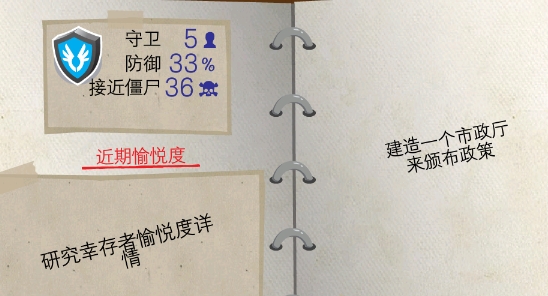 守卫 5
防御 33%
接近僵尸 36
近期愉悦度
研究幸存者愉悦度详
情
建造一个市政厅
来颁布政策